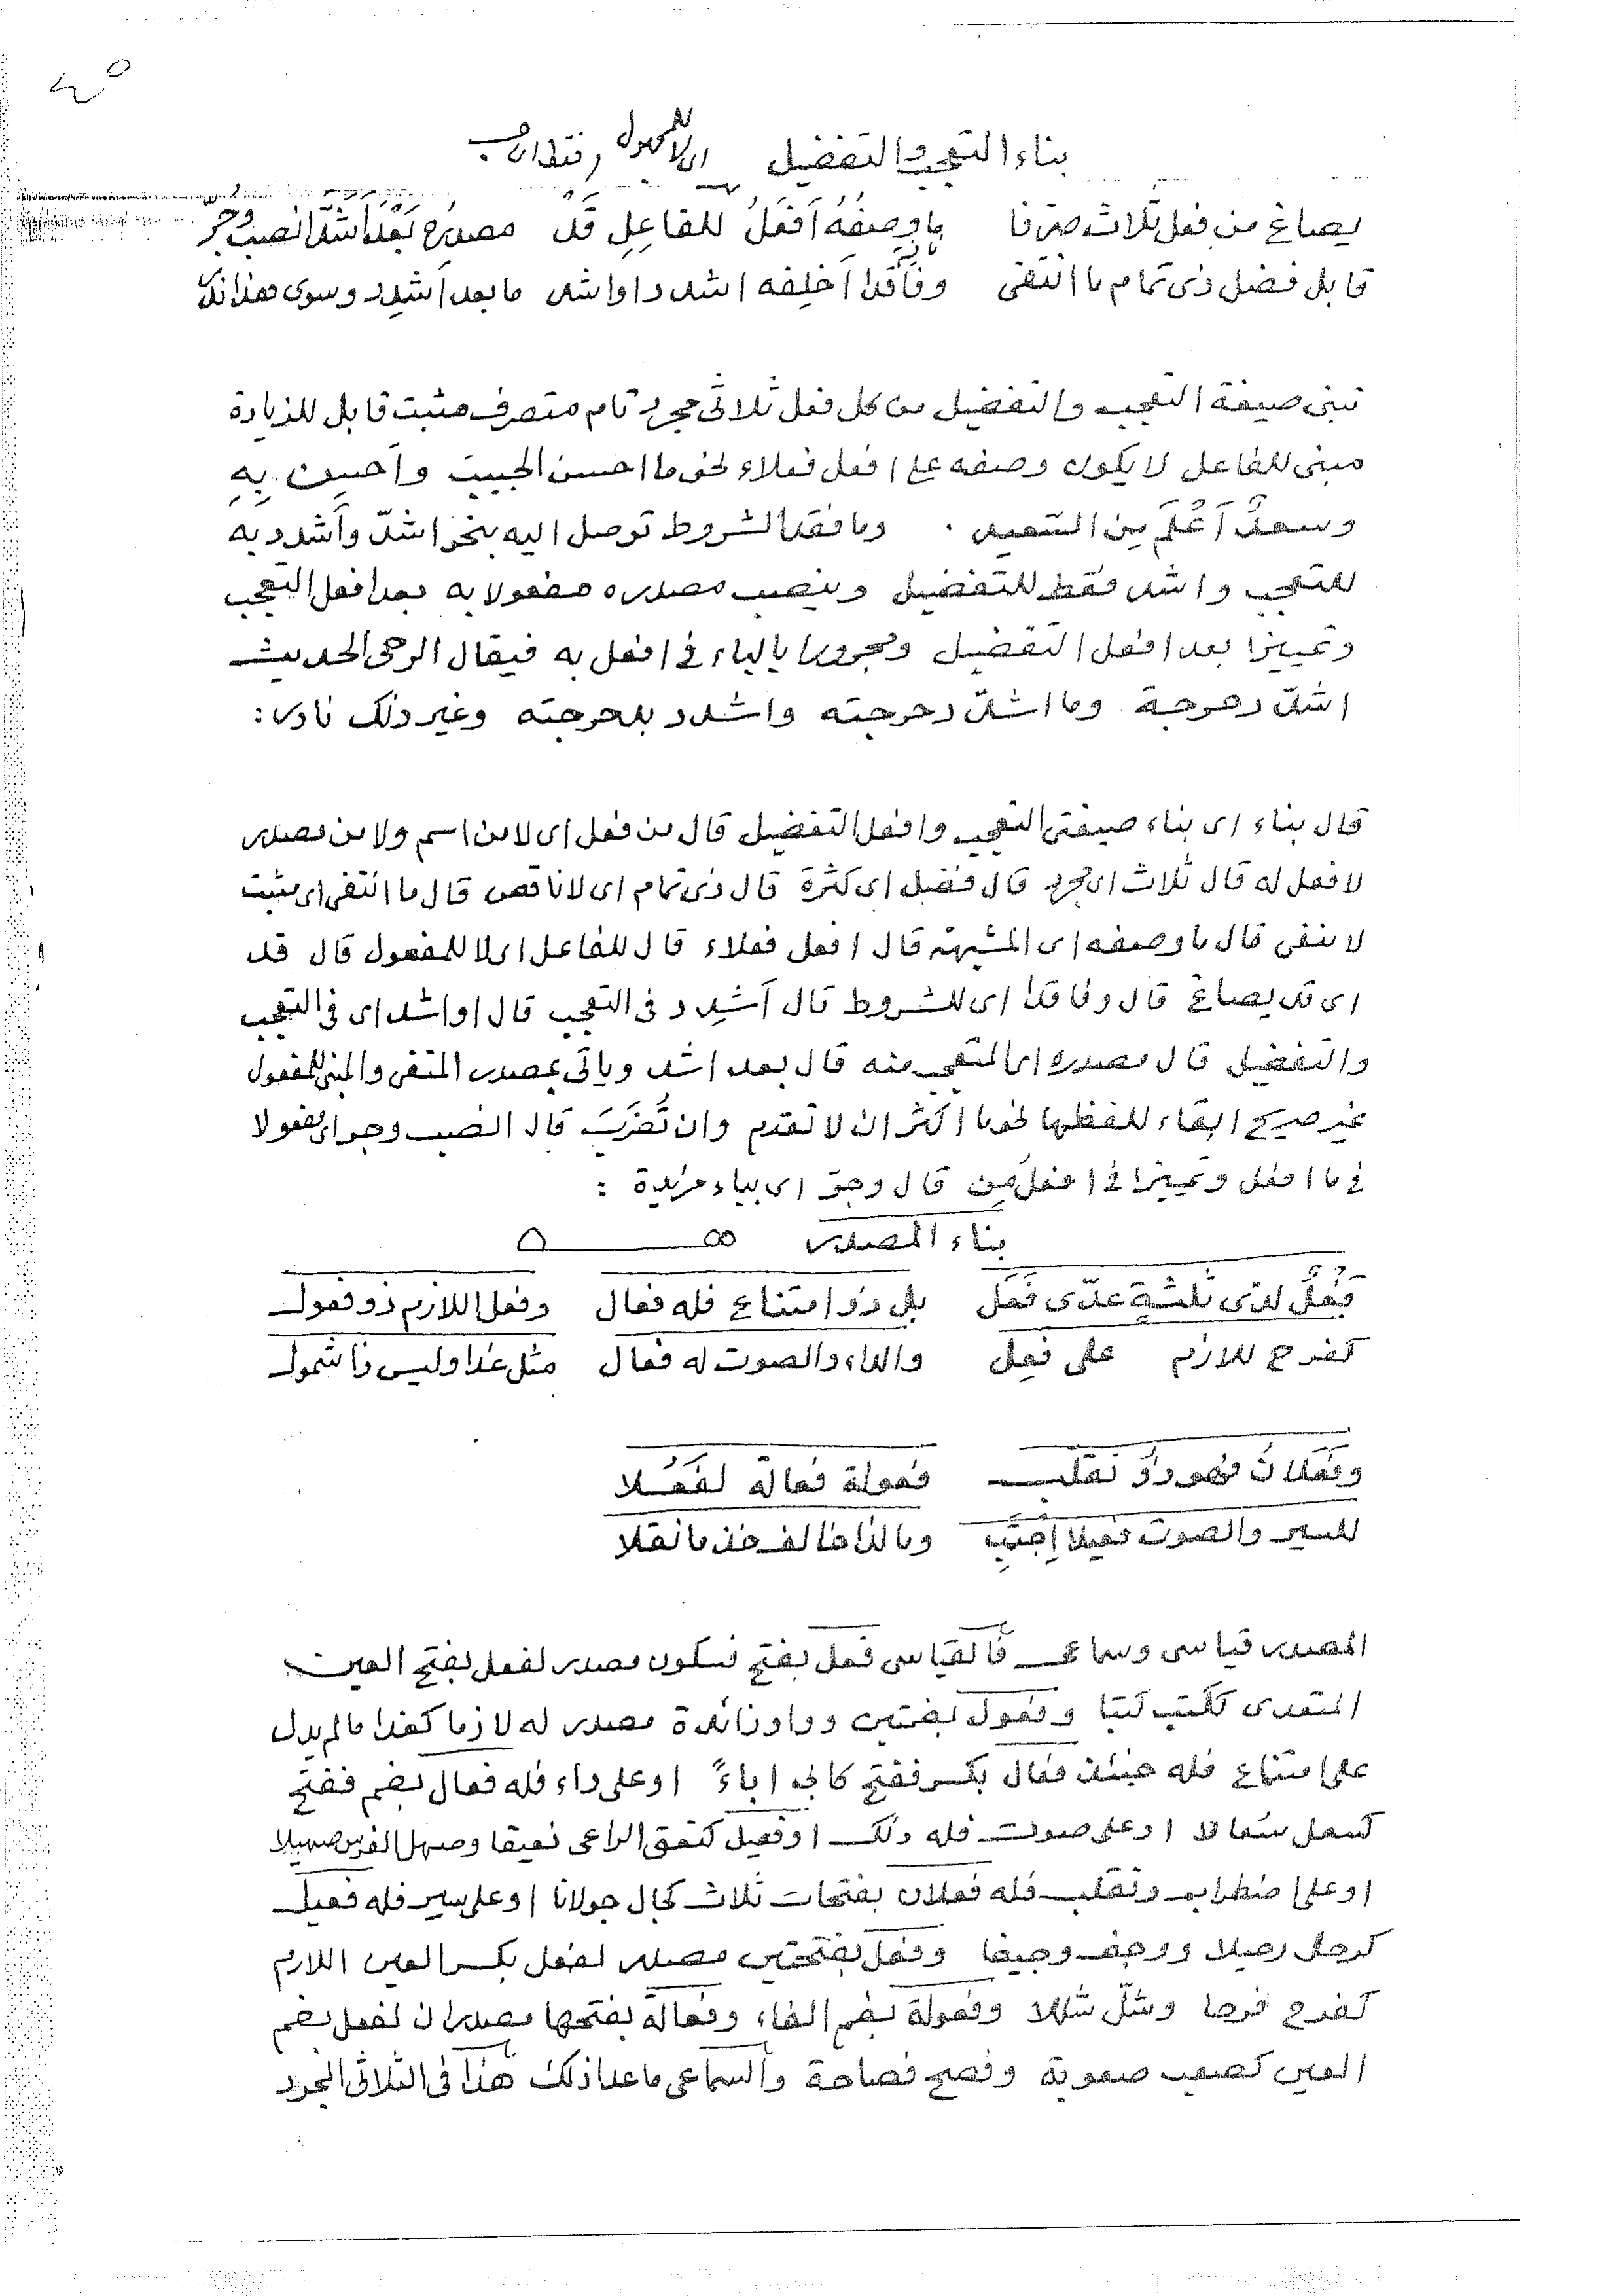 بناء التعجب والتفضيل
يصاغ من فعل ثلاث صرفا ما وصفه أفعل للفاعل قد مصدره بعد أشد انصب وجر
قابل فضل ذى تمام ما انتفى وفاقدا أخلفه اشدد او اشد ما بعد أشدد وسوى هذا ندر
تبنى صيغة التعجب والتفضيل من كل فعل ثلاثى مجرد تام متصرف مثبت قابل للزيادة
مبنى للفاعل لا يكون وصفه على افعل فعلاء نحو ما احسن الحبيب وأحسن بِهِ
وسعدٌ أعْلَم مِن السَّعيد . وما فقد الشروط توصل اليه بنحو اشدّ وأشدد به
للتعجب واشد فقط للتفضيل وينصب مصدره مفعولا به بعد افعل التعجب
وتمييزا بعد افعل التفضيل ومجرورا بالباء فى افعل به فيقال الرحى الحديث
اشدّ دحرجة وما اشدّ دحرجته واشدد بدحرجته وغير ذلك نادر :
قال بناء اى بناء صيغتى التعجب وافعل التفضيل قال من فعل اى لا من اسم ولا من مصدر
لا فعل له قال ثلاث اى مجرد قال فضل اى كثرة قال ذى تمام اى لا ناقص قال ما انتفى اى مثبت
لا منفى قال ما وصفه اى المشبهة قال افعل فعلاء قال للفاعل اى لا للمفعول قال قد
اى قد يصاغ قال وفاقدا اى للشروط قال أشدِد فى التعجب قال او اشد اى فى التعجب
والتفضيل قال مصدره اى المتعجب منه قال بعد اشد وياتى بمصدر المنفى والمبنى للمفعول
غير صريح ابقاء للفظهما نحو ما اكثر ان لا تقدم وان تُضرَبَ قال انصب وجر اى مفعولا
فى ما افعل وتمييزا فى افعل مِن قال وجرّ اى بباء مزيدة :
بناء المصدر
فَعْلٌ لدى ثلثةٍ عدّى فَعَل بل ذو امتناع فله فعال وفعل اللازم ذو فعول
كفرح للازم على فعِل والداء والصوت له فعال مثل غدا وليس ذا شمول
وفَعَلان فهو ذو تقلب فعولة فعالة لفَعُلا
للسير والصوت فعيلا إجتبِ وما لذا خالف خذ ما نقلا
المصدر قياسى وسماعى فالقياسى فعل بفتح فسكون مصدر لفعل بفتح العين
المتعدى ككتب كتبا وفعول بضمتين وواو زائدة مصدر له لازما كغدا ما لم يدل
على امتناع فله حينئذ فعال بكسر ففتح كابى اباءً او على داء فله فعال بضم ففتح
كسعل سُعالا او على صوت فله ذلك او فعيل كنعق الراعى نعيقا وصهل الفرس صهيلا
او على اضطراب وتقلب فله فعلان بفتحات ثلاث كجال جولانا او على سير فله فعيل
كرحل رحيلا ووجف وجيفا وفعل بفتحتين مصدر لفعل بكسر العين اللازم
كفرح فرحا وشلّ شللا وفعولة بضم الفاء وفعالة بفتحها مصدران لفعل بضم
العين كصعب صعوبة وفصح فصاحة والسماعى ما عدا ذلك هذا فى الثلاثى المجرد